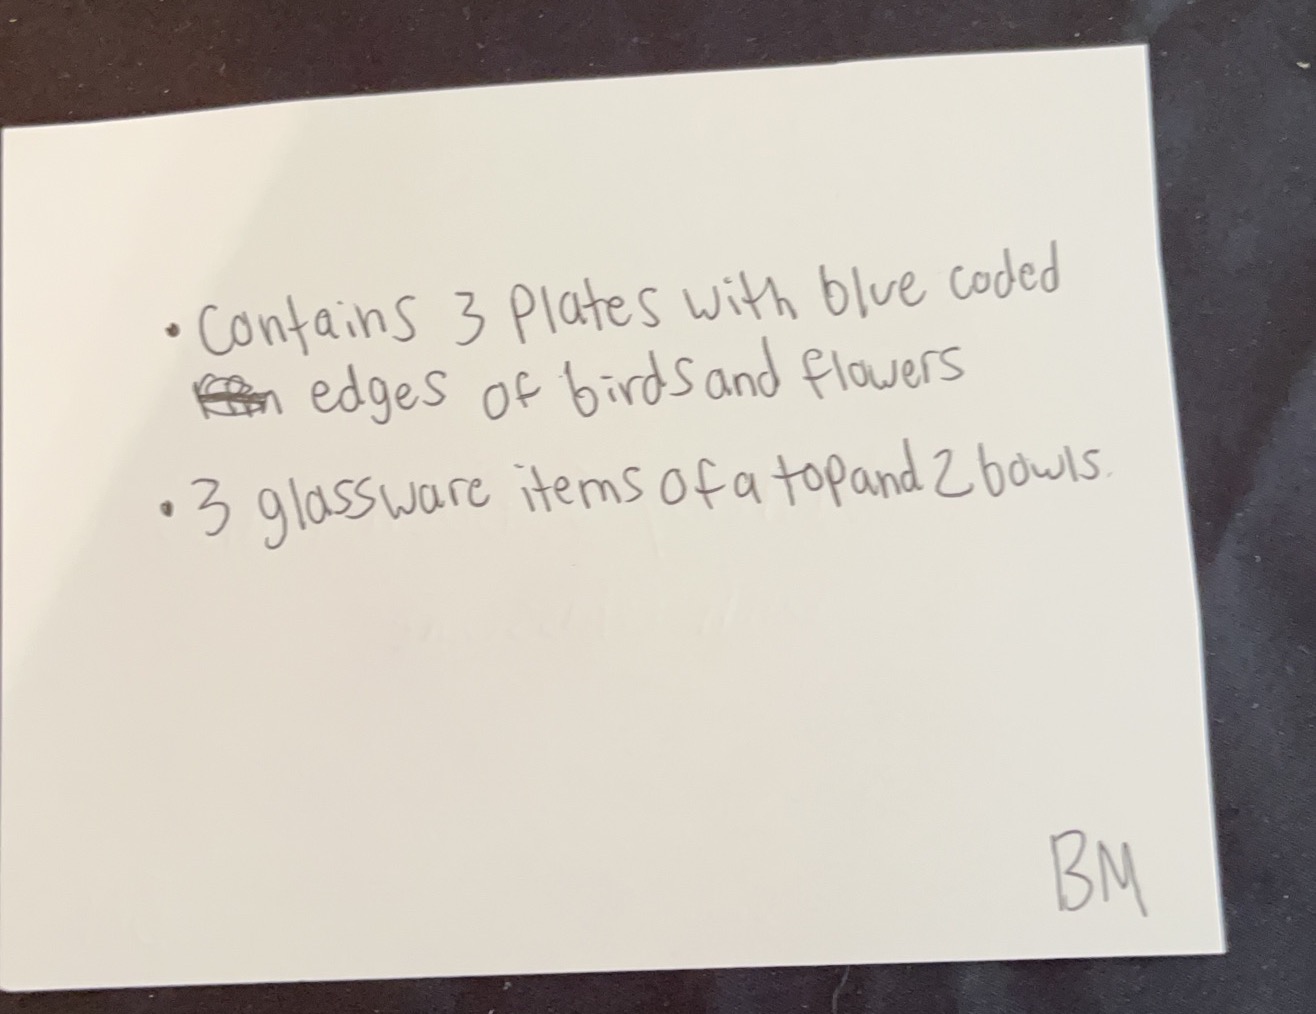 • Contains 3 Plates with blue coded
edges of birds and flowers
• 3 glassware items of a top and 2 bowls.
BM